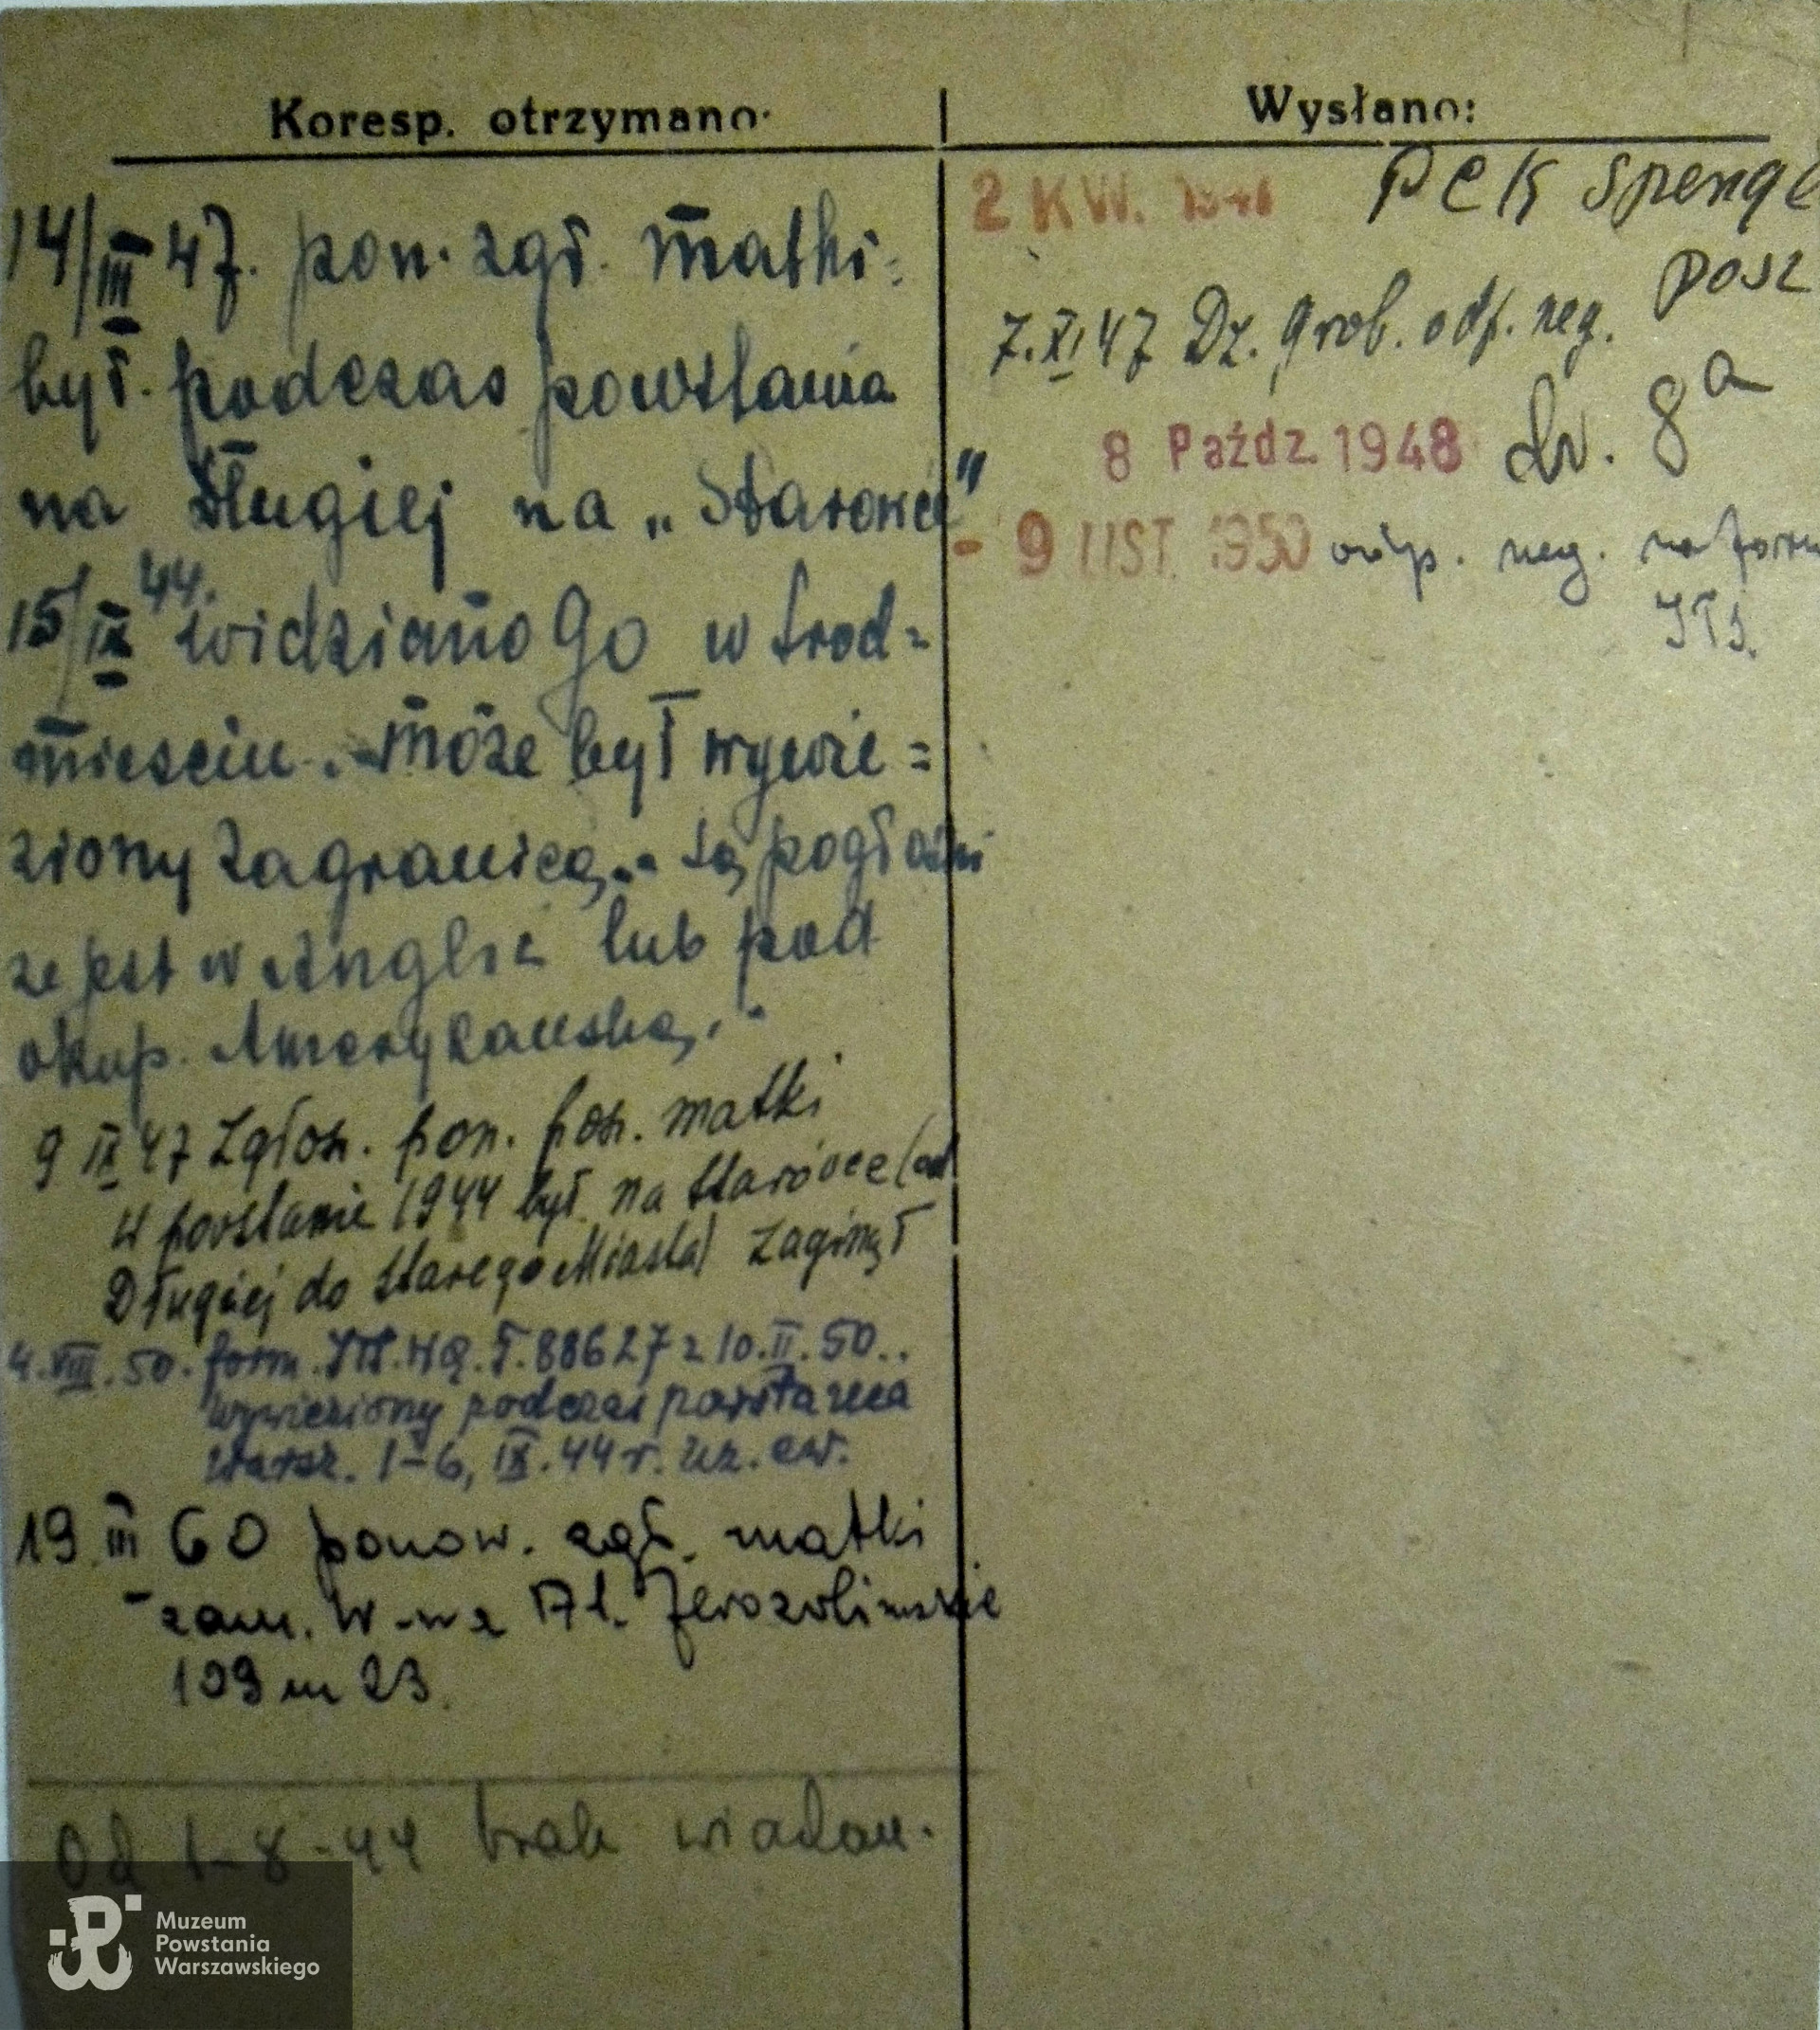 Koresp. otrzymano:
14/III 47. pon. zgł. matki:
był. podczas powstania
na Długiej na „Starówce"
15/IX 44. widziano Go w Śród=
mieściu. - może był wywie=
ziony zagranicą.- są pogłoski
że jest w Anglii lub pod
okup. Amerykańską."
9 IX 47 Zgłosz. pon. posz. matki
W powstanie 1944 był na Starówce (od
Długiej do Starego Miasta) zaginął
4.VIII.50. form. ITS.HQ.T.88627 z 10.II.50..
wywieziony podczas powstania
Warsz. 1-6, IX.44 r.
19 III 60 ponow. zgł. matki
- zam. W-wa Al. Jerozolimskie
109 m 23.
Od 1-8-44 brak wiadom.
Wysłano:
2 KW. 1946 PCK Spengl
posz
7.XI 47 Dz. grob. odp. neg.
8 Paźdz. 1948 dr. 8a
- 9 LIST. 1950 odp. neg. na form
ITS.
Muzeum
Powstania
Warszawskiego